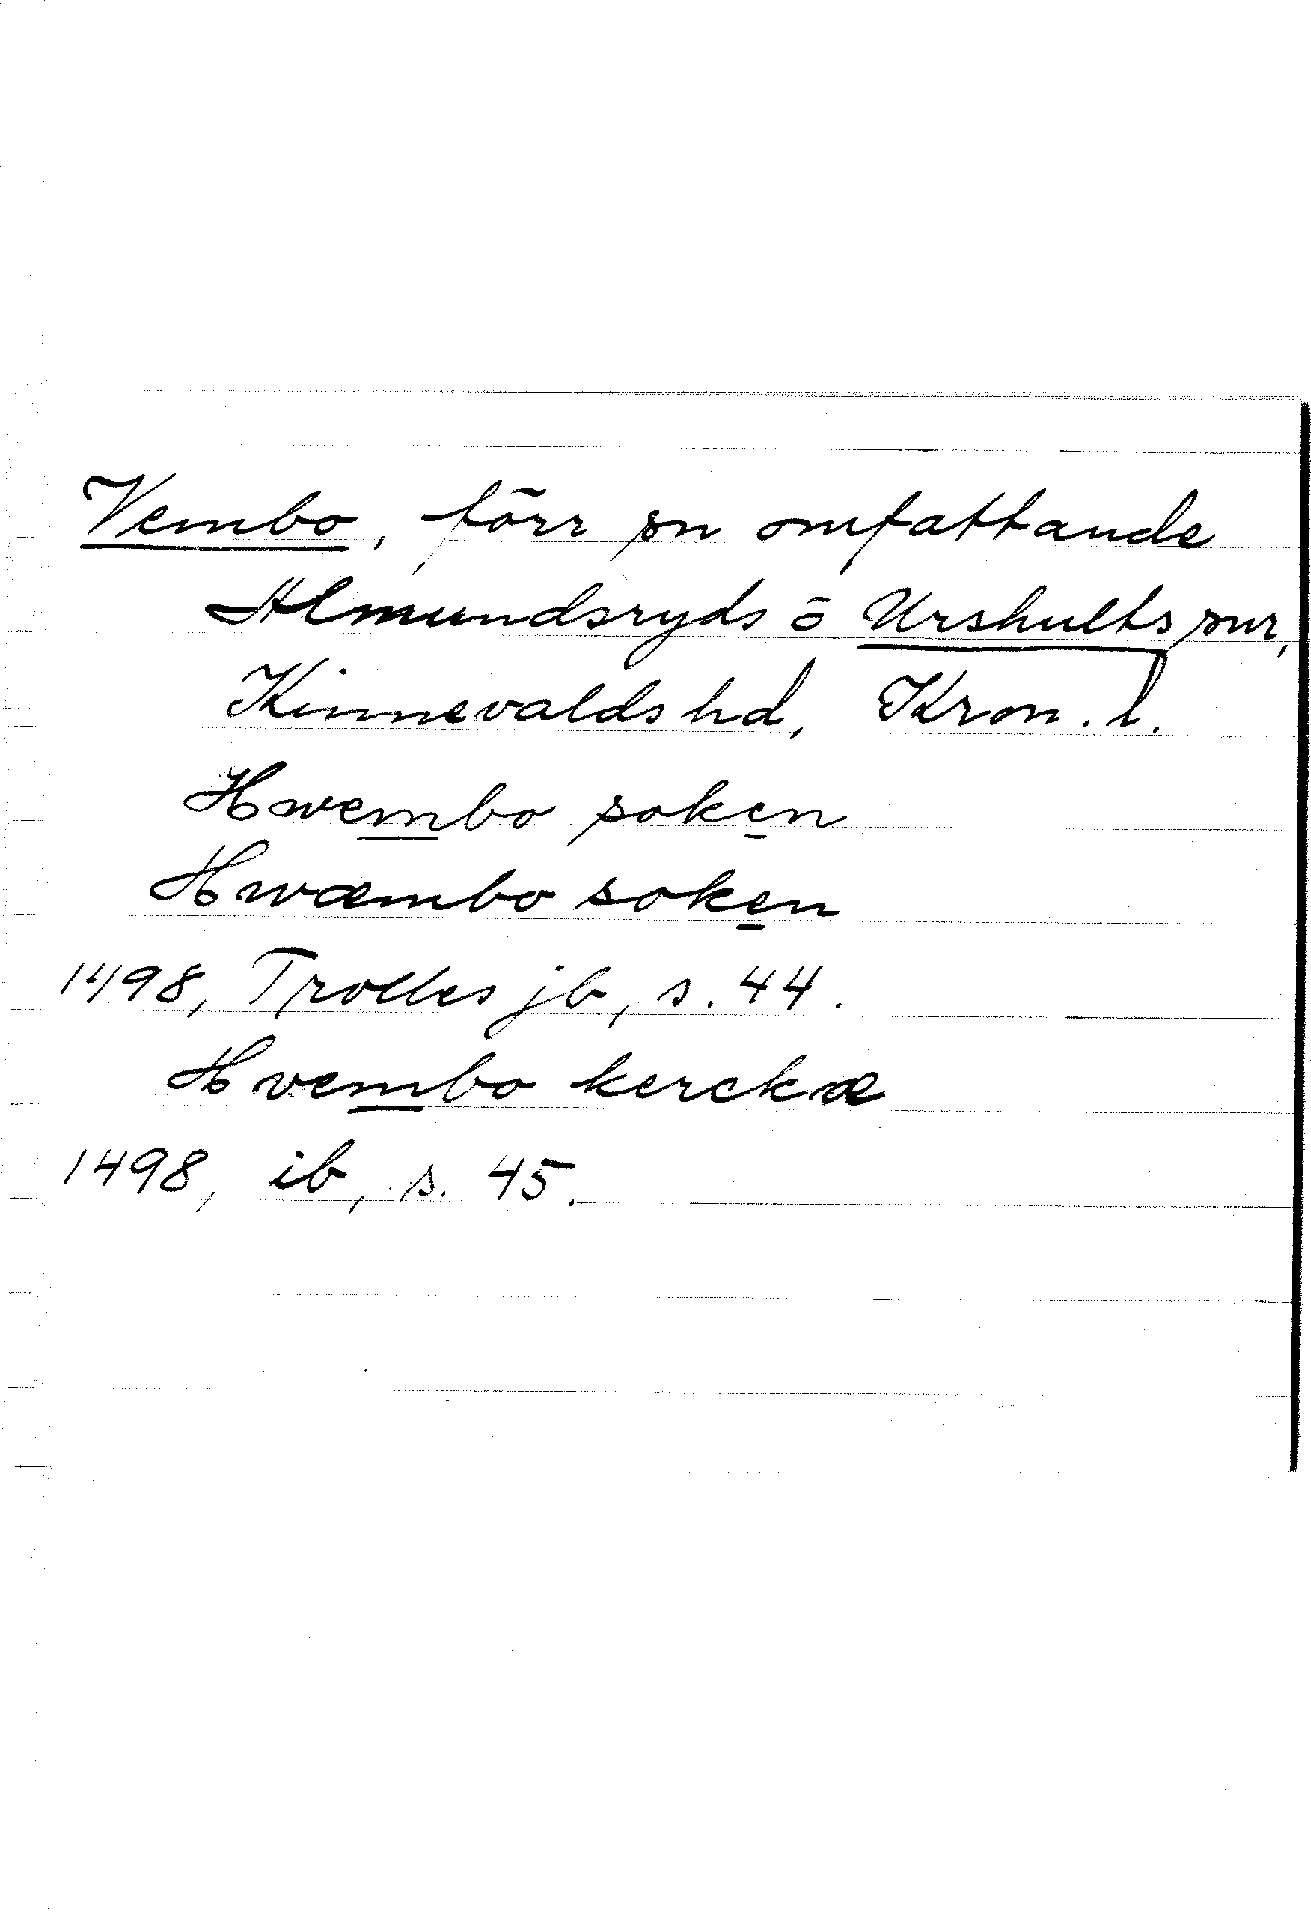 Vembo, förr sn omfattande
Almundsryds o Urshults snr,
Kinnevalds hd, Kron. l.
Hwembo soken
Hwæmbo soken
1498, Trolles jb, s. 44.
Hvembo kerckæ
1498, ib, s. 45.